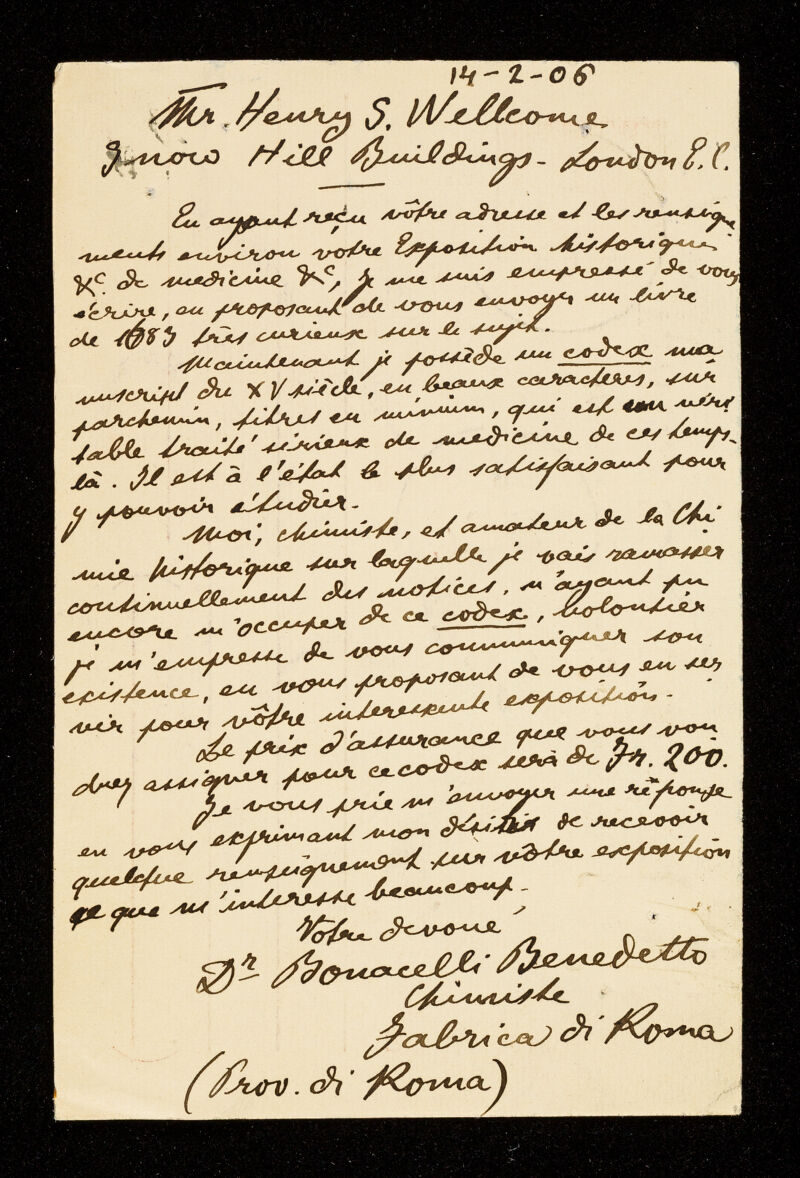 14-2-06
Mr. Henry S. Wellcome
Snow Hill Buildings - London E.C.
En ayant reçu vôtre adresse et les renseigne
ments environ vôtre Exposition historique
&c. de medicine &c, Je me suis empressé de vous
écrire, en proposant de vous envoyer un livre
de 1683 très curieux sur le sujet.
Maintenant je possède un codex ma
nuscript du XV siècle, en beaux caractères, sur
parchemin, titres en minium, qui est un véri
table traité sérieux de medicine de ces temps-
là. Il est à l'état le plus satisfaisant pour
y pouvoir étudier.
Moi, chimiste, et amateur de la Chi
mie historique sur laquelle je vais ramasser
continuellement des notices, n'ayant pu
encore m'occuper de ce codex, volontier
je m'empresse de vous communiquer son
existence, en vous proposant de vous en ser
vir pour vôtre interessente exposition.
Le prix d'assurance que vous vou
drez assigner pour ce codex serà de Fr. 200.
Je vous prie m'envoyer une réponse
en vous exprimant mon désir de recevoir
quelque renseignement sur vôtre exposition
ce que m'interesse beaucoup.
Votre devoué
Dr Bonacelli Benedetto
Chimiste
Fabrica di Roma
(Prov. di Roma)